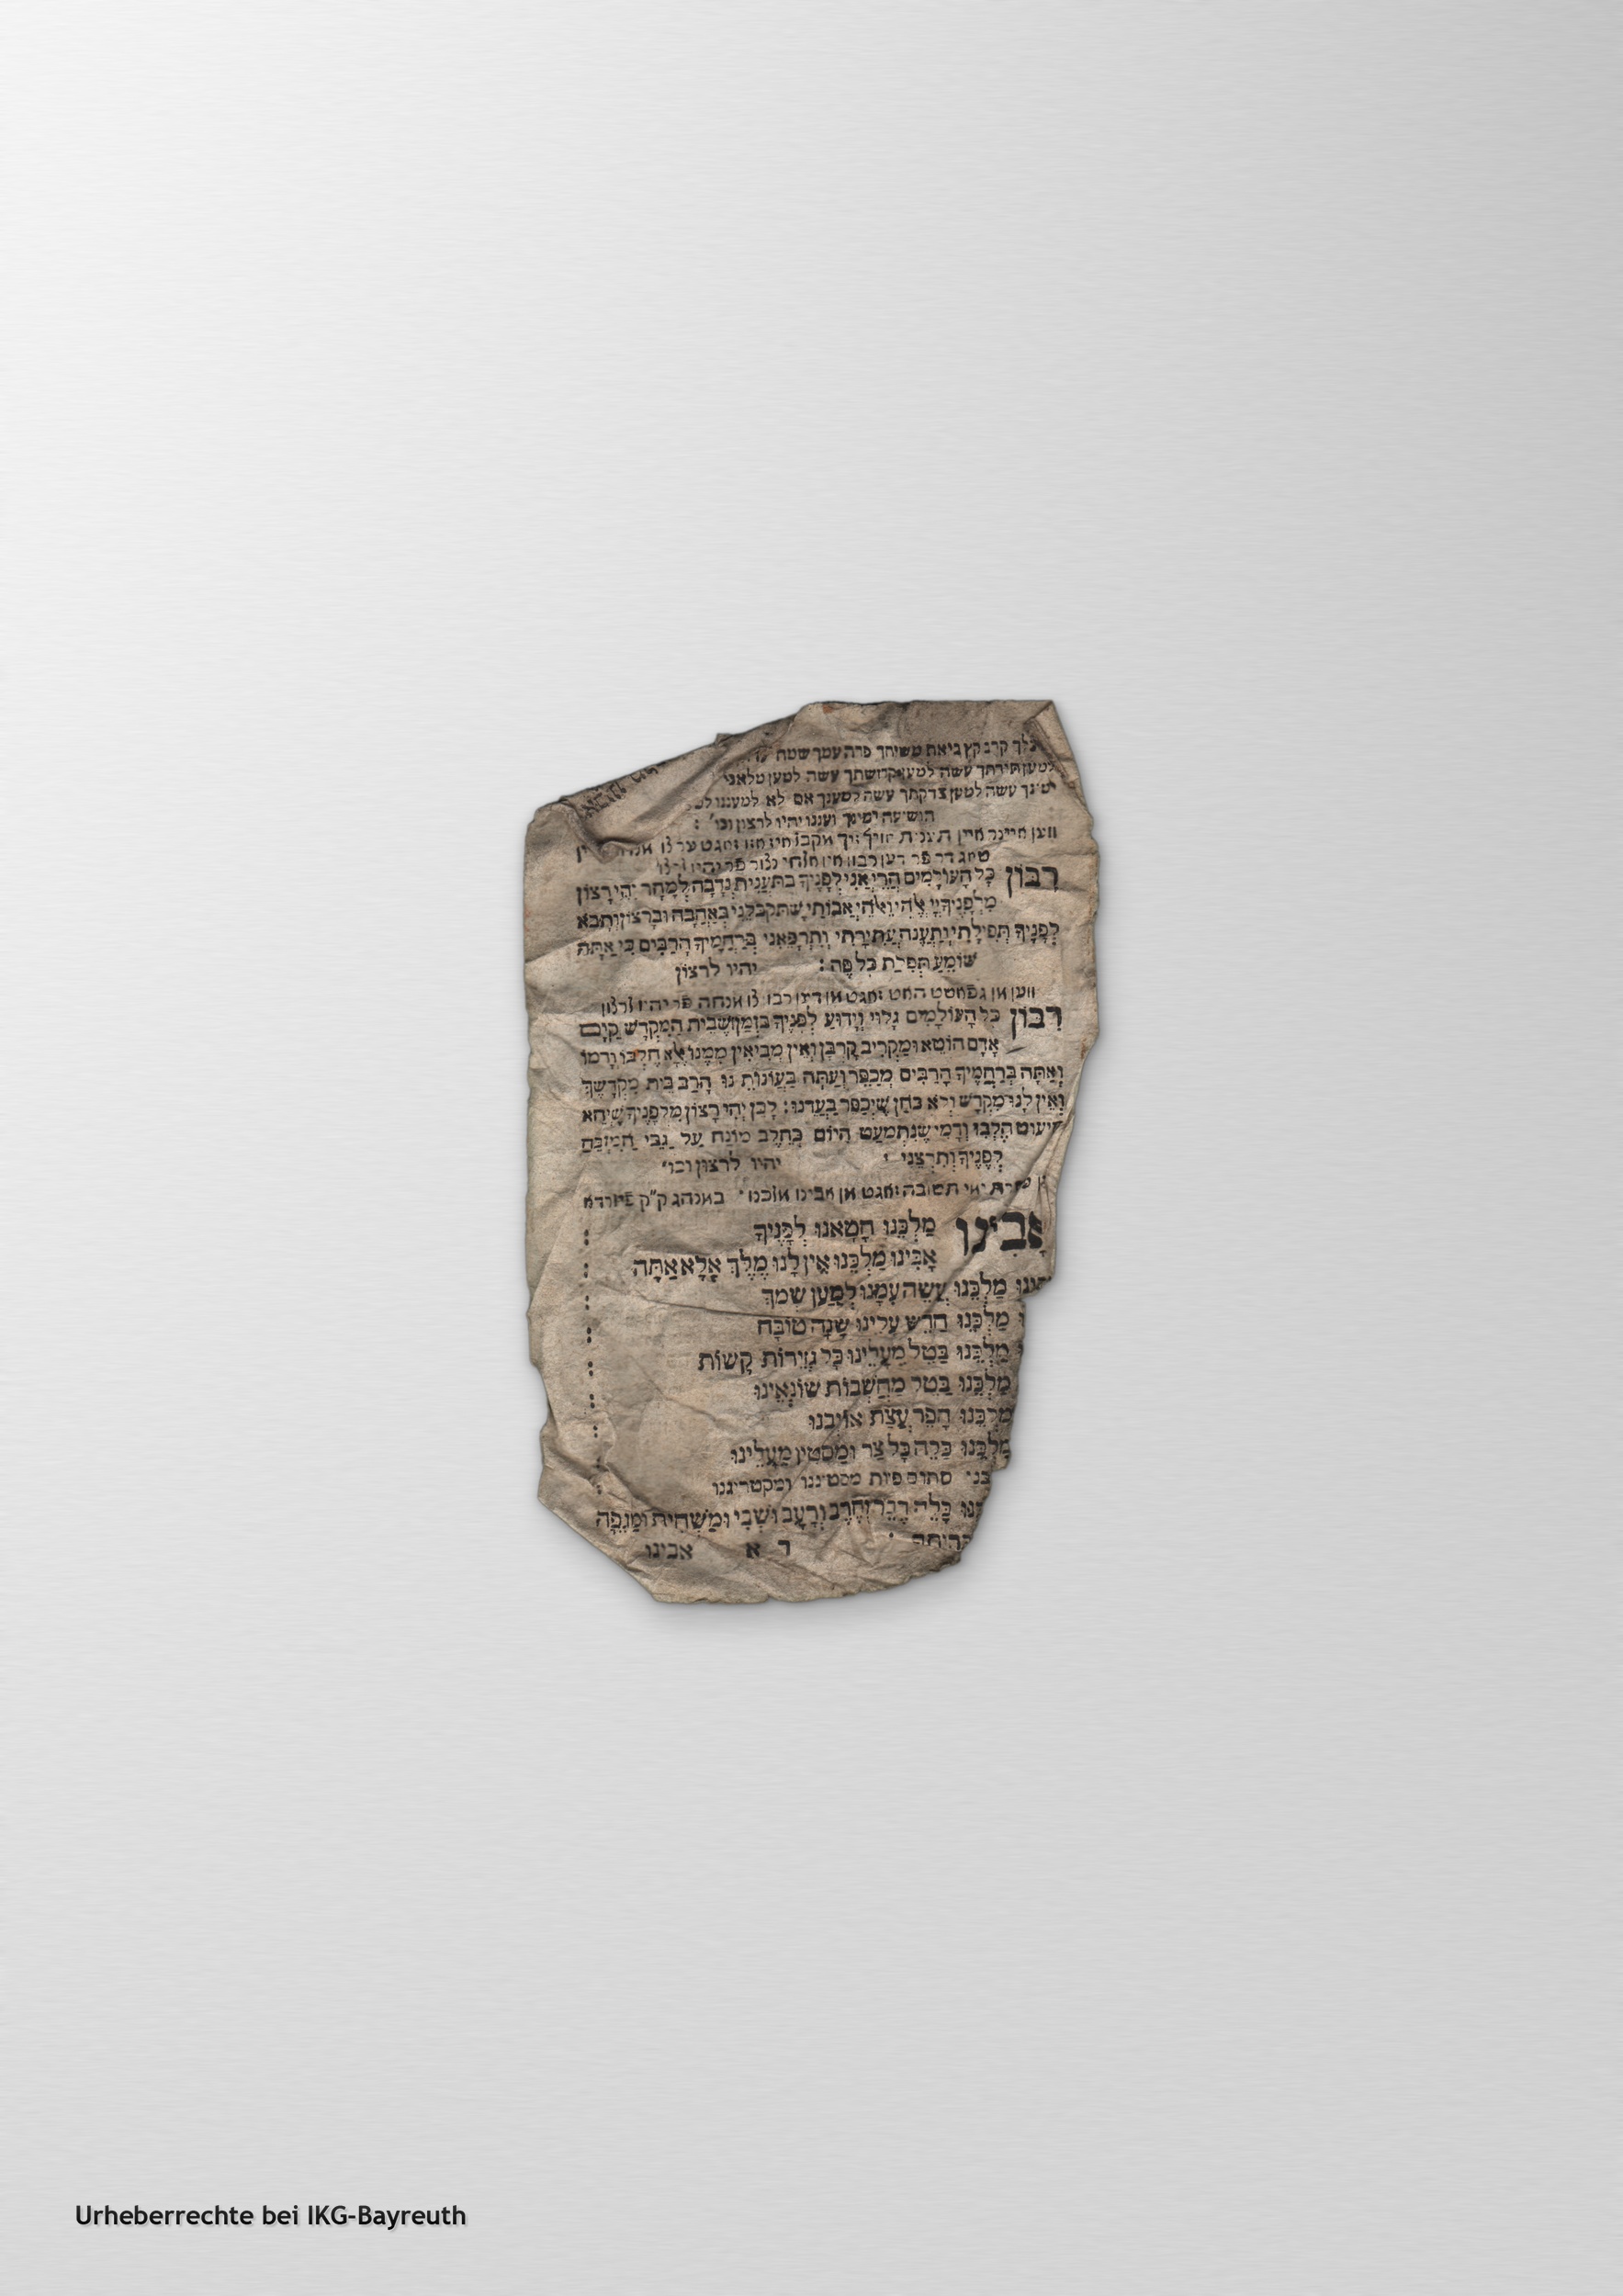 מלך קרב קץ ביאת משיחך פדה עמך שמח
למען תורתך עשה למען קדושתך עשה למען מלאכי
ימינך עשה למען צדקתך עשה למענך אם לא למעננו
הושיעה ימינך ועננו יהיו לרצון וכו׳ :
ווען איינר איין תענית
רִבּוֹן כָּל הָעוֹלָמִים הֲרֵי אֲנִי לְפָנֶיךָ בְּתַעֲנִית נְדָבָה לְמָחָר יְהִי רָצוֹן
מִלְּפָנֶיךָ יְיָ אֱלֹהַי וֵאלֹהֵי אֲבוֹתַי שֶׁתְּקַבְּלֵנִי בְּאַהֲבָה וּבְרָצוֹן וְתָבֹא
לְפָנֶיךָ תְּפִילָתִי וְתַעֲנֶה עֲתִירָתִי וְתִרְפָּאֵנִי בְּרַחֲמֶיךָ הָרַבִּים כִּי אַתָּה
שׁוֹמֵעַ תְּפִלַּת כָּל פֶּה : יהיו לרצון
ווען מן גפאסט האט זאגט מן דיזן רבון צו מנחה פר יהיו לרצון
רִבּוֹן כָּל הָעוֹלָמִים גָּלוּי וְיָדוּעַ לְפָנֶיךָ בִּזְמַן שֶׁבֵּית הַמִּקְדָּשׁ קַיָּם
אָדָם חוֹטֵא וּמַקְרִיב קָרְבָּן וְאֵין מְבִיאִין מִמֶּנּוּ אֶלָּא חֶלְבּוֹ וְדָמוֹ
וְאַתָּה בְּרַחֲמֶיךָ הָרַבִּים מְכַפֵּר וְעַתָּה בַּעֲוֹנוֹתֵינוּ חָרַב בֵּית מִקְדָּשֶׁךָ
וְאֵין לָנוּ מִקְדָּשׁ וְלֹא כֹּהֵן שֶׁיְּכַפֵּר בַּעֲדֵנוּ : לָכֵן יְהִי רָצוֹן מִלְּפָנֶיךָ שֶׁיְּהֵא
מיעוט חֶלְבִּי וְדָמִי שֶׁנִּתְמַעֵט הַיּוֹם כְּחֵלֶב מוּנָח עַל גַּבֵּי הַמִּזְבֵּחַ
לְפָנֶיךָ וְתִרְצֵנִי : יהיו לרצון וכו׳
ימי תשובה זאגט מן אבינו מלכנו ׳ במנהג ק״ק פיורדא
אָבִינוּ מַלְכֵּנוּ חָטָאנוּ לְפָנֶיךָ
אָבִינוּ מַלְכֵּנוּ אֵין לָנוּ מֶלֶךְ אֶלָּא אַתָּה
מַלְכֵּנוּ עֲשֵׂה עִמָּנוּ לְמַעַן שְׁמֶךָ
מַלְכֵּנוּ חַדֵּשׁ עָלֵינוּ שָׁנָה טוֹבָה
מַלְכֵּנוּ בַּטֵּל מֵעָלֵינוּ כָּל גְּזֵירוֹת קָשׁוֹת
מַלְכֵּנוּ בַּטֵּל מַחְשְׁבוֹת שׂוֹנְאֵינוּ
מַלְכֵּנוּ הָפֵר עֲצַת אוֹיְבֵנוּ
מַלְכֵּנוּ כַּלֵּה כָּל צַר וּמַסְטִין מֵעָלֵינוּ
סתום פיות מסטיננו ומקטריגנו
כַּלֵּה דֶּבֶר וְחֶרֶב וְרָעָב וּשְׁבִי וּמַשְׁחִית וּמַגֵּפָה
ד א אבינו
Urheberrechte bei IKG-Bayreuth